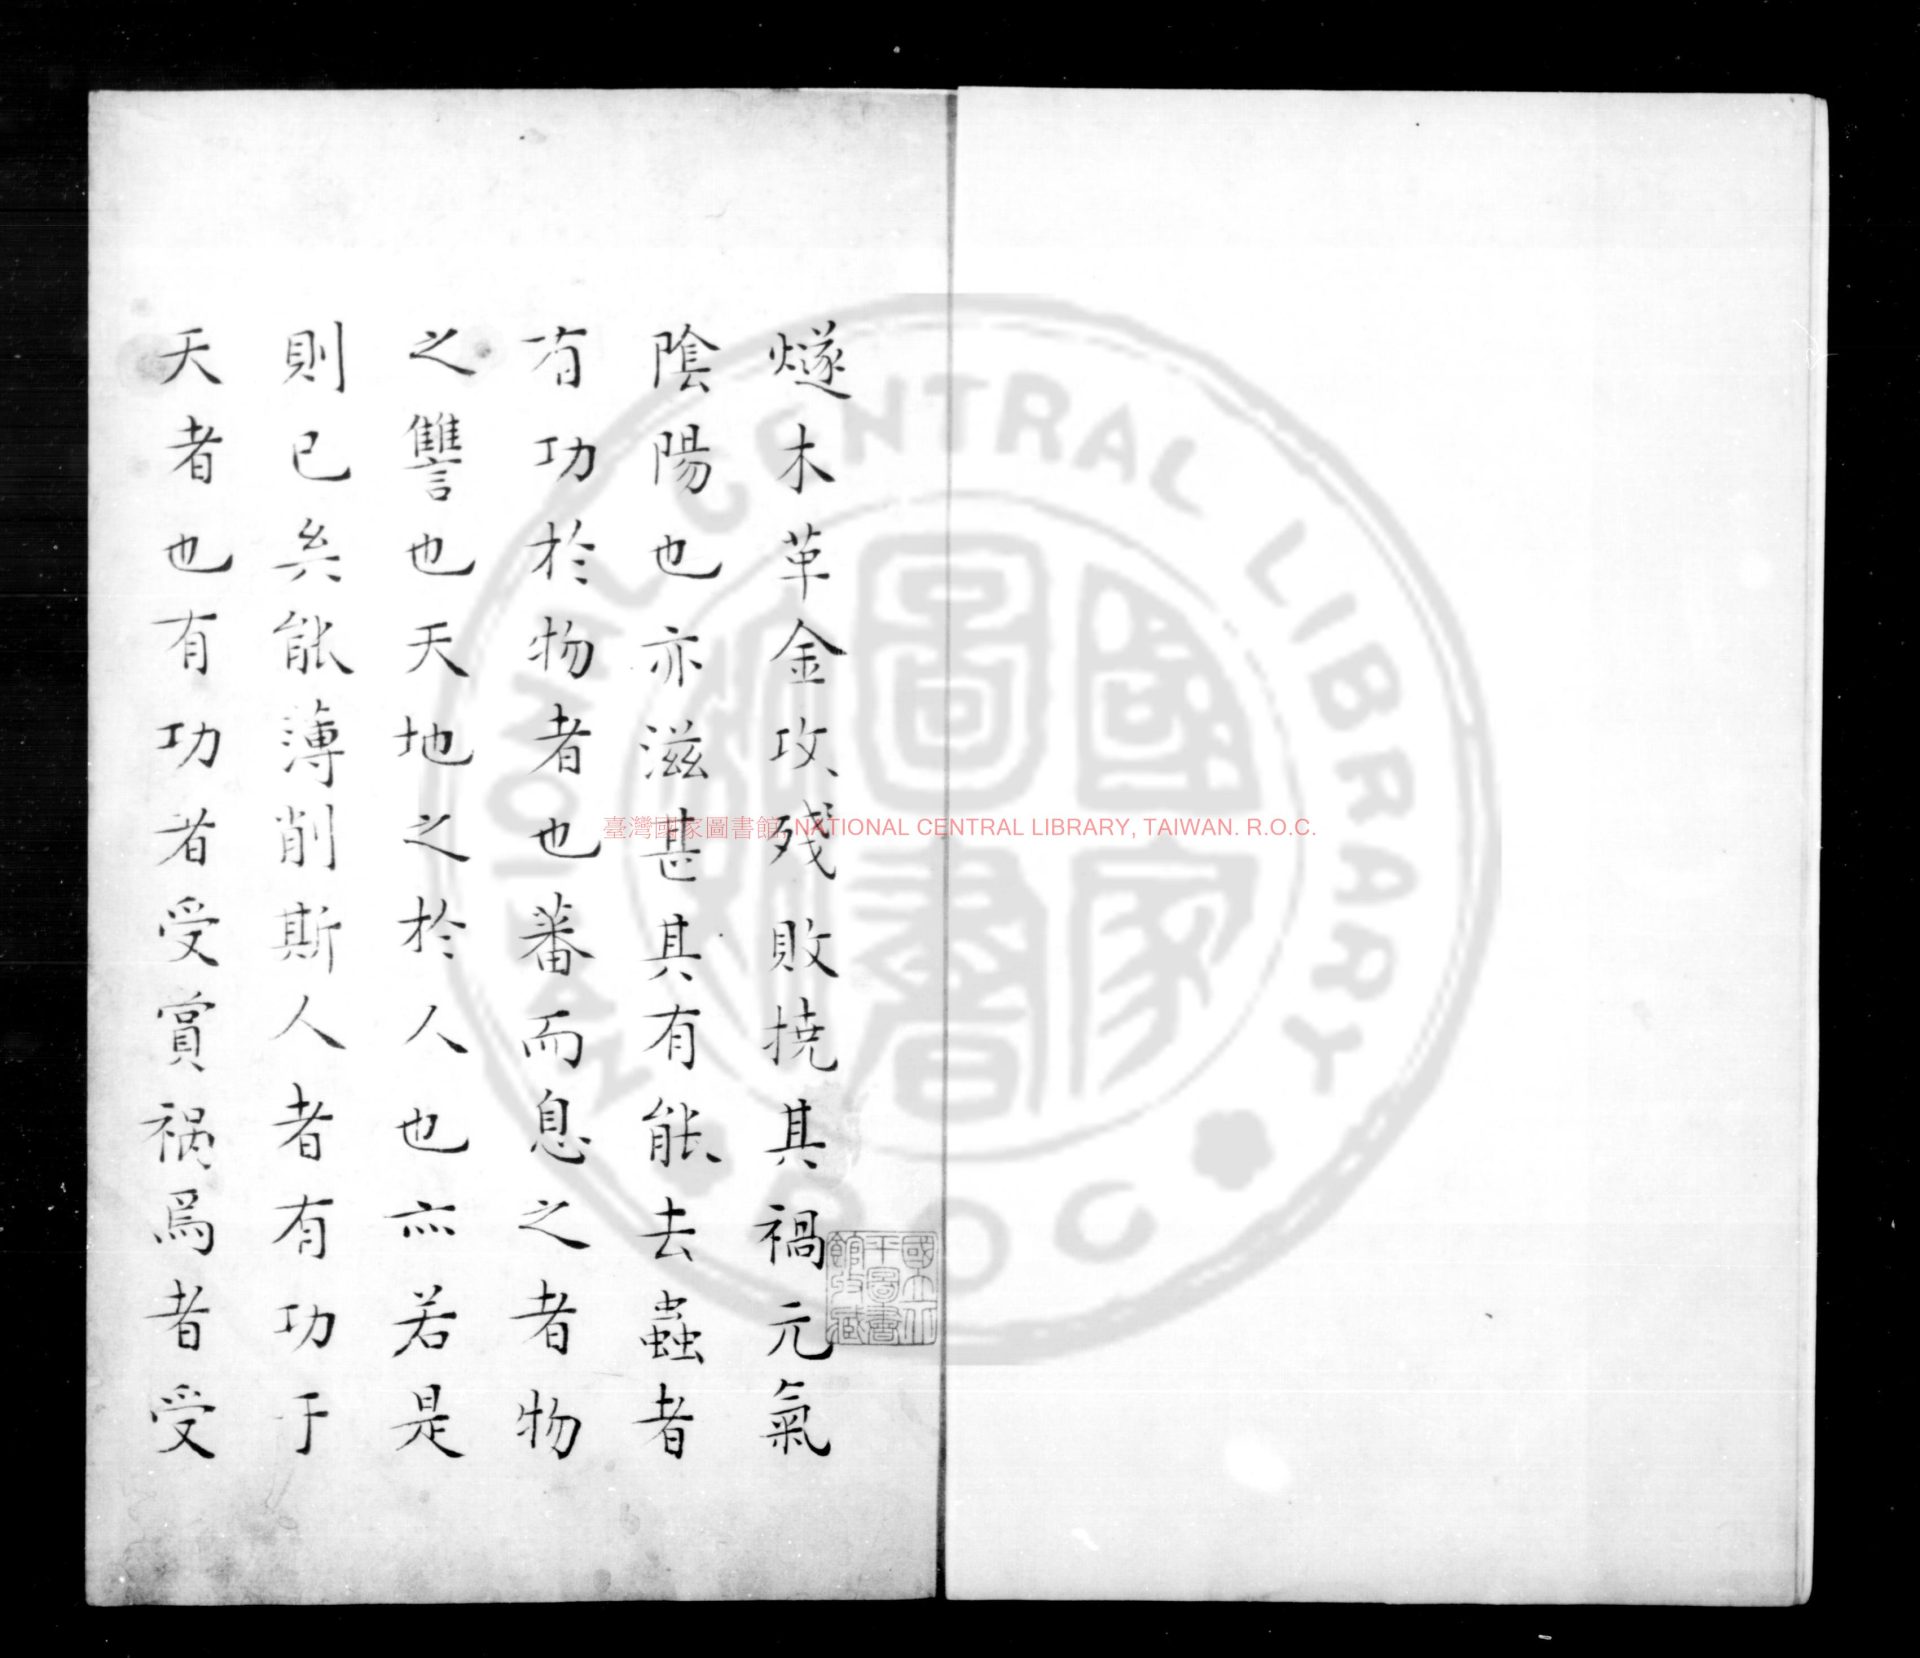 燧木革金攻殘敗撓其禍元氣
陰陽也亦滋甚其有能去蟲者
有功於物者也蕃而息之者物
之讐也天地之於人也亦若是
則已矣能薄削斯人者有功于
天者也有功者受賞禍爲者受
國立北
平圖書
館收藏
臺灣國家圖書館, NATIONAL CENTRAL LIBRARY, TAIWAN. R.O.C.
NATIONAL CENTRAL LIBRARY
R.O.C
國家
圖書